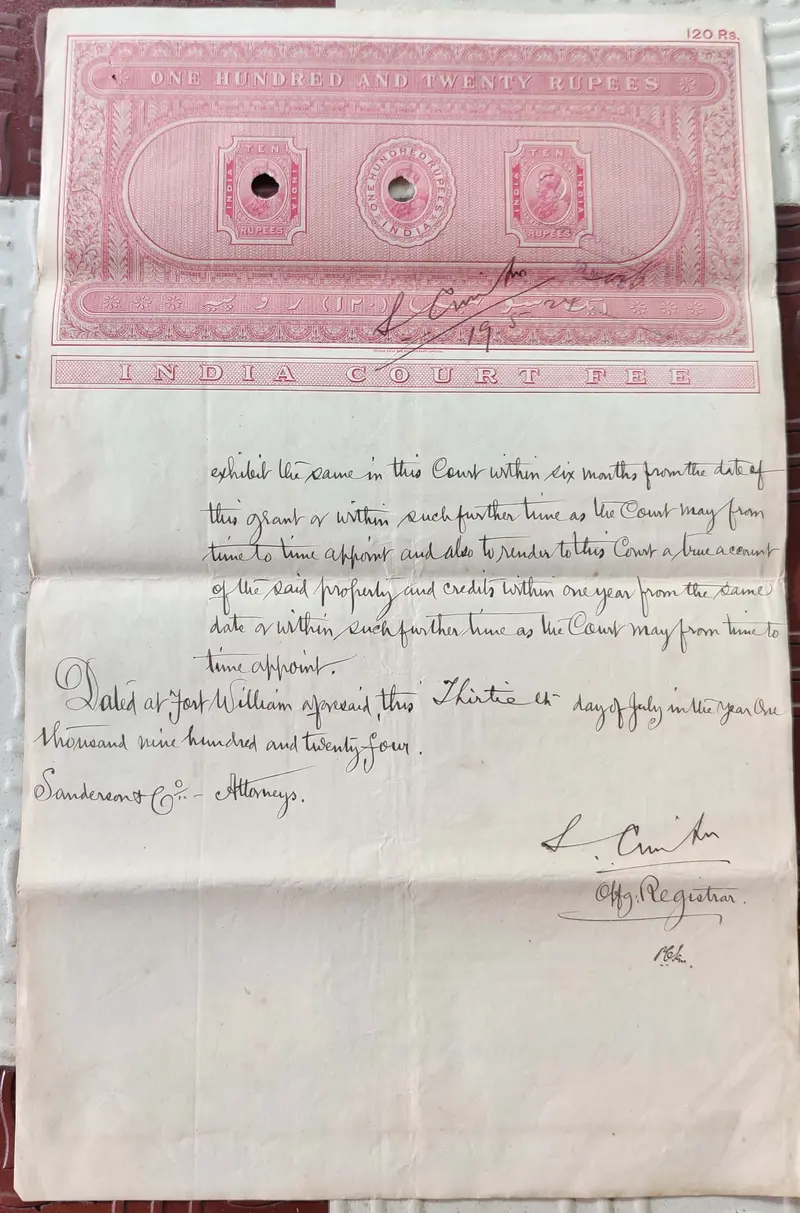 120 Rs.
ONE HUNDRED AND TWENTY RUPEES
TEN
INDIA INDIA
RUPEES
ONE HUNDRED RUPEES
INDIA
TEN
INDIA INDIA
RUPEES
ایک سو بیس (١٢٠) روپیہ
19 5 24
INDIA COURT FEE
exhibit the same in this Court within six months from the date of
this grant or within such further time as the Court may from
time to time appoint and also to render to this Court a true account
of the said property and credits within one year from the same
date or within such further time as the Court may from time to
time appoint.
Dated at Fort William aforesaid, this Thirtieth day of July in the Year One
thousand nine hundred and twenty four.
Sanderson & Co. - Attorneys.
Offg: Registrar.